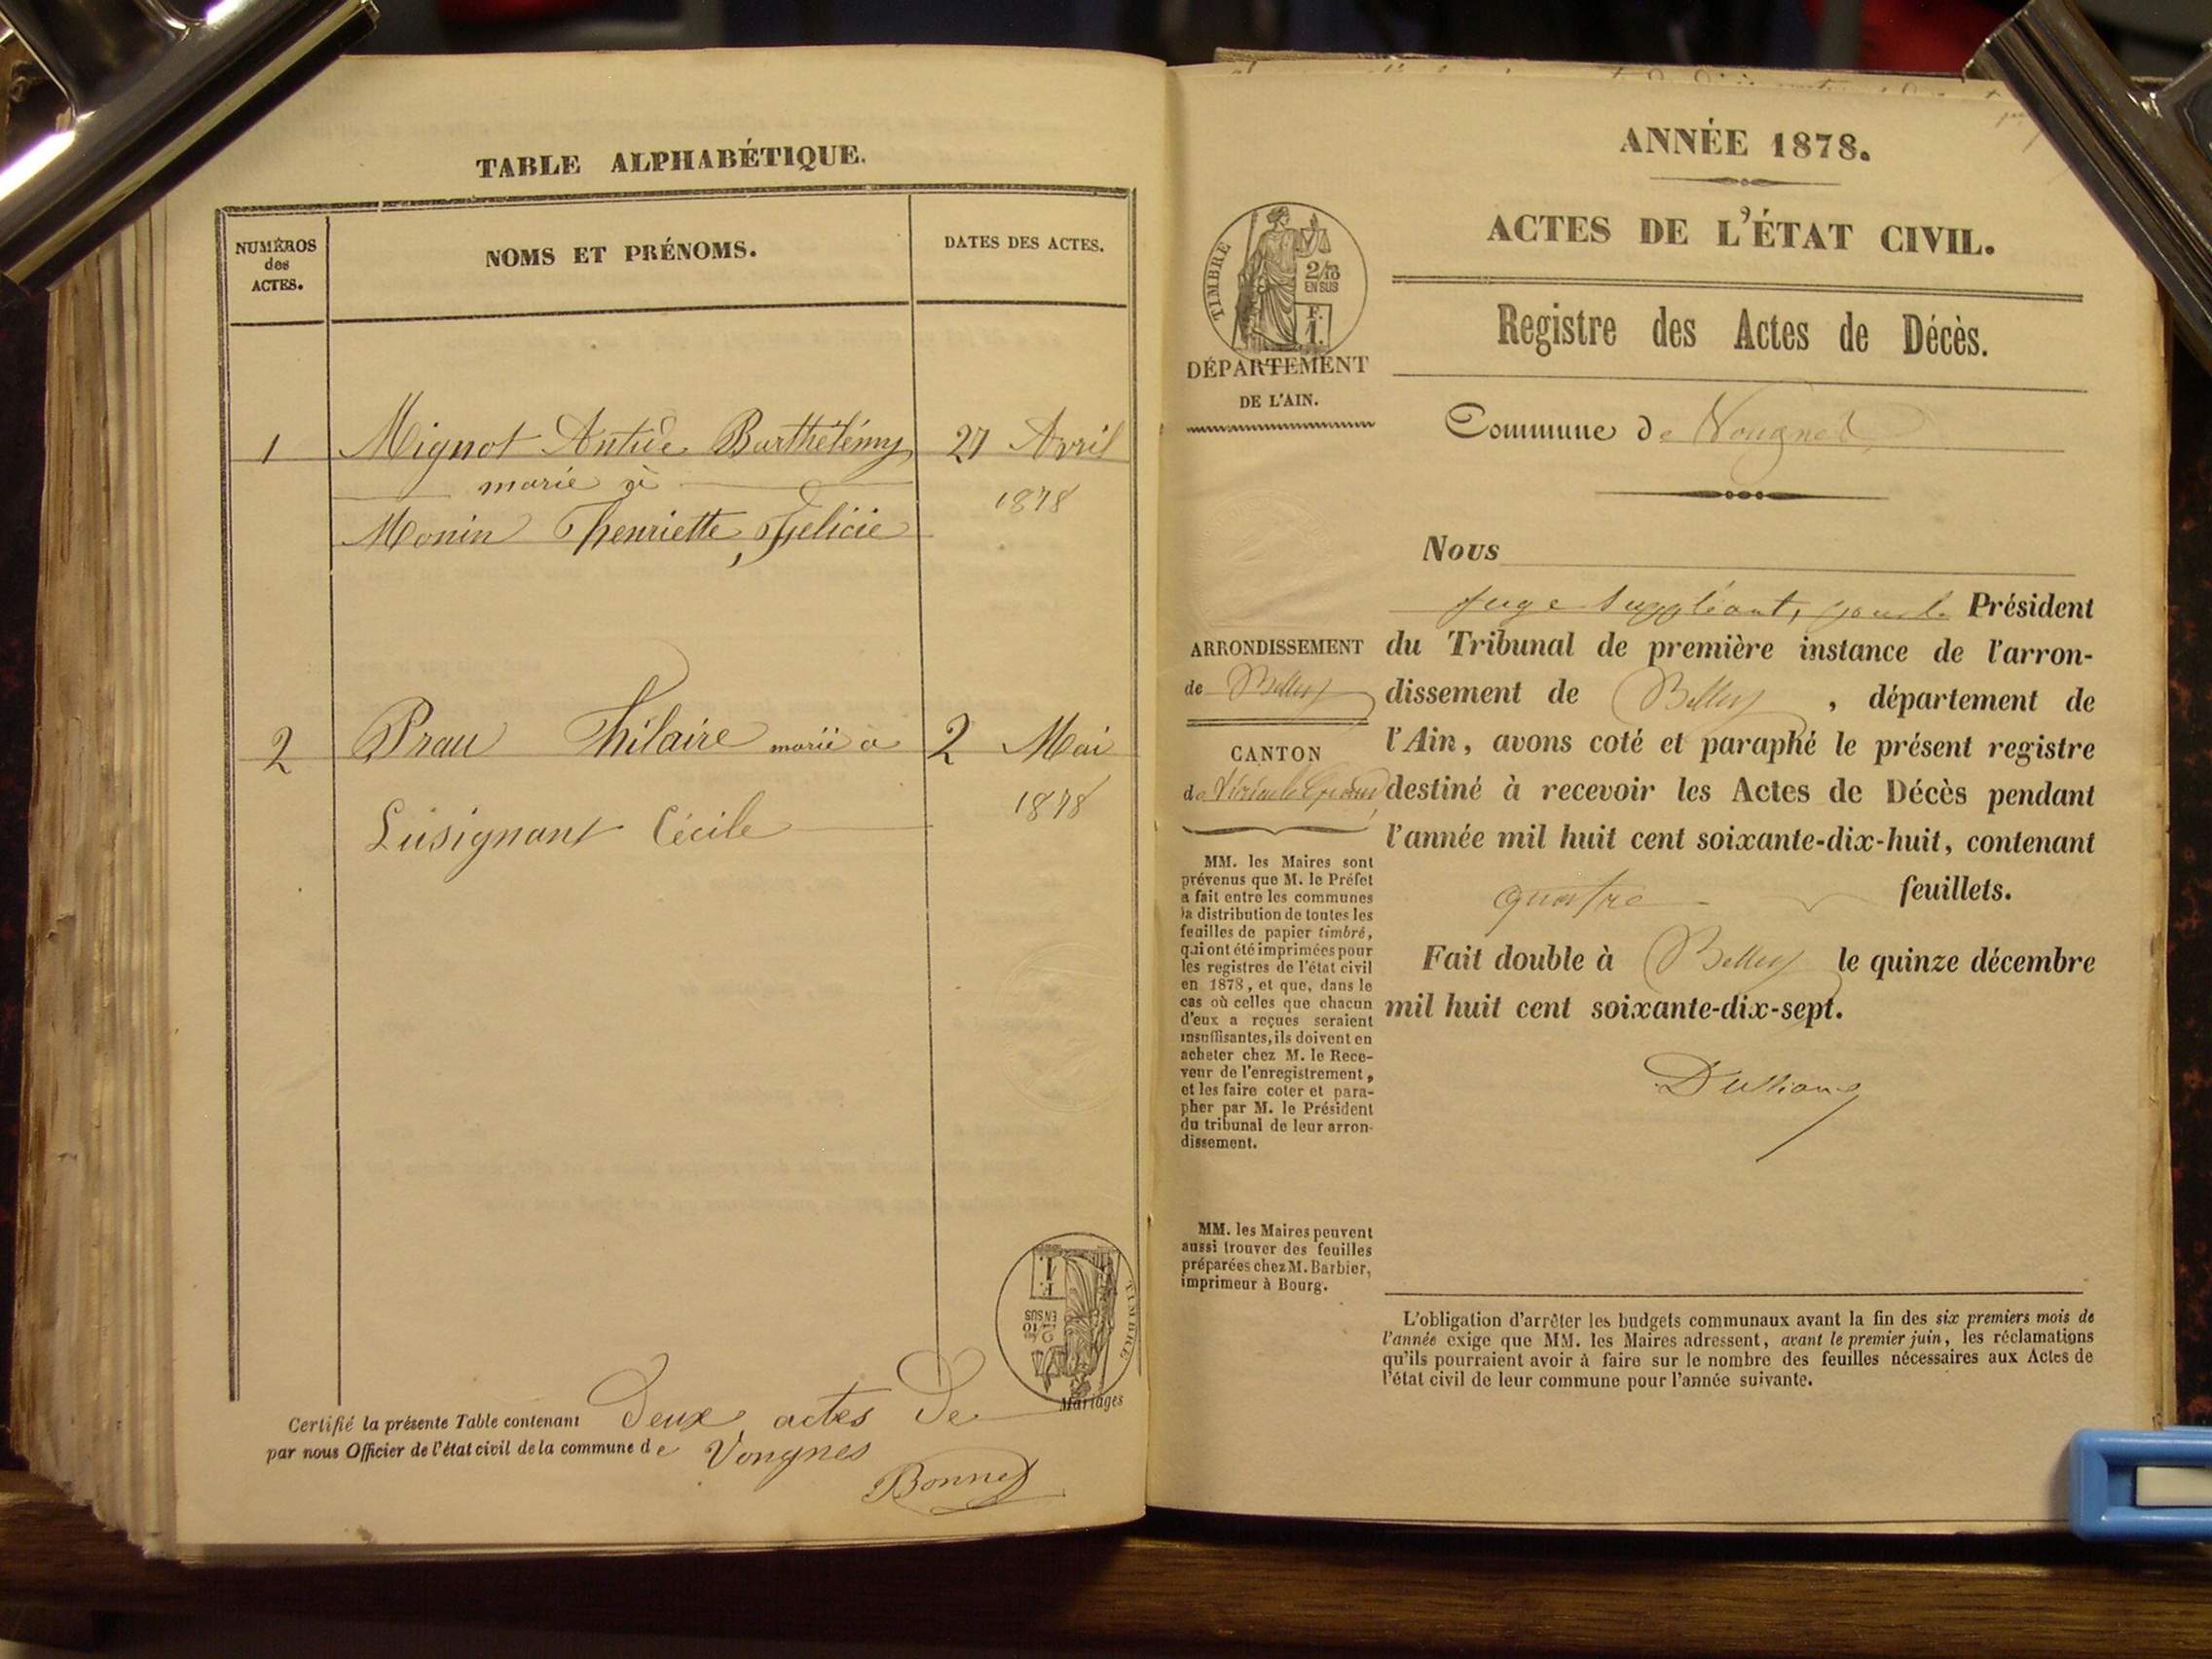 TABLE ALPHABÉTIQUE.
NUMÉROS
des
ACTES.
NOMS ET PRÉNOMS.
DATES DES ACTES.
1 Mignot Antide Barthélémy 27 Avril
marié à
1878
Monin henriette, Félicie
2 Prau hilaire marié a 2 Mai
1878
Lusignant Cécile
F.
1.
EN SUS
2/10
TIMBRE
Certifié la présente Table contenant deux actes de Mariages
par nous Officier de l'état civil de la commune de Vongnes
Bonnet
ANNÉE 1878.
ACTES DE L'ÉTAT CIVIL.
TIMBRE
2/10
EN SUS
F.
1.
DÉPARTEMENT
DE L'AIN.
Registre des Actes de Décès.
Commune de Vougnes
Nous
juge suppléant, pour le Président
du Tribunal de première instance de l'arron-
dissement de Belley, département de
l'Ain, avons coté et paraphé le présent registre
destiné à recevoir les Actes de Décès pendant
l'année mil huit cent soixante-dix-huit, contenant
quatre feuillets.
Fait double à Belley le quinze décembre
mil huit cent soixante-dix-sept.
ARRONDISSEMENT
de Belley
CANTON
de Virieu le Grand
MM. les Maires sont
prévenus que M. le Préfet
a fait entre les communes
la distribution de toutes les
feuilles de papier timbré,
qui ont été imprimées pour
les registres de l'état civil
en 1878, et que, dans le
cas où celles que chacun
d'eux a reçues seraient
insuffisantes, ils doivent en
acheter chez M. le Rece-
veur de l'enregistrement,
et les faire coter et para-
pher par M. le Président
du tribunal de leur arron-
dissement.
MM. les Maires peuvent
aussi trouver des feuilles
préparées chez M. Barbier,
imprimeur à Bourg.
L'obligation d'arrêter les budgets communaux avant la fin des six premiers mois de
l'année exige que MM. les Maires adressent, avant le premier juin, les réclamations
qu'ils pourraient avoir à faire sur le nombre des feuilles nécessaires aux Actes de
l'état civil de leur commune pour l'année suivante.